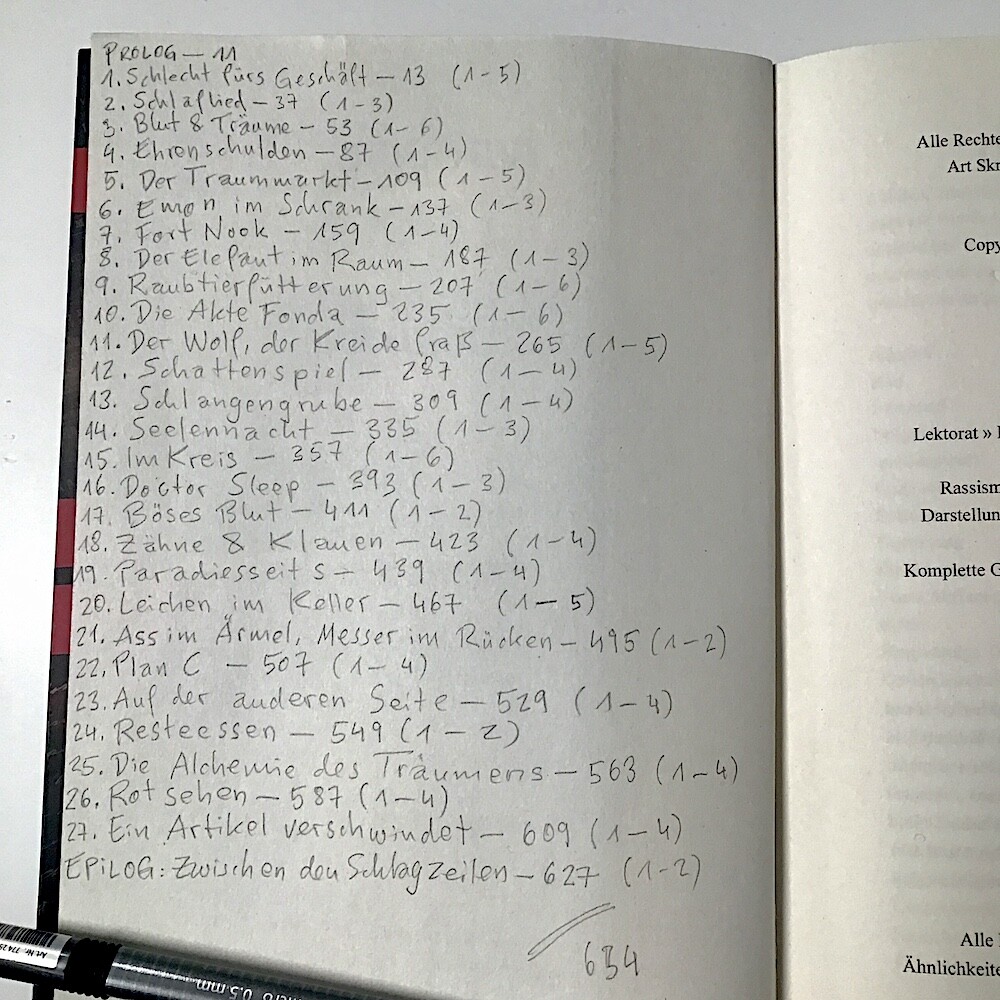 PROLOG — 11
1. Schlecht fürs Geschäft — 13 (1-5)
2. Schlaflied — 37 (1-3)
3. Blut & Träume — 53 (1-6)
4. Ehrenschulden — 87 (1-4)
5. Der Traummarkt — 109 (1-5)
6. Emon im Schrank — 137 (1-3)
7. Fort Nook — 159 (1-4)
8. Der Elefant im Raum — 187 (1-3)
9. Raubtierfütterung — 207 (1-6)
10. Die Akte Fonda — 235 (1-6)
11. Der Wolf, der Kreide fraß — 265 (1-5)
12. Schattenspiel — 287 (1-4)
13. Schlangengrube — 309 (1-4)
14. Seelennacht — 335 (1-3)
15. Im Kreis — 357 (1-6)
16. Doctor Sleep — 393 (1-3)
17. Böses Blut — 411 (1-2)
18. Zähne & Klauen — 423 (1-4)
19. Paradiesseits — 439 (1-4)
20. Leichen im Keller — 467 (1-5)
21. Ass im Ärmel, Messer im Rücken — 495 (1-2)
22. Plan C — 507 (1-4)
23. Auf der anderen Seite — 529 (1-4)
24. Resteessen — 549 (1-2)
25. Die Alchemie des Träumens — 563 (1-4)
26. Rot sehen — 587 (1-4)
27. Ein Artikel verschwindet — 609 (1-4)
EPILOG: Zwischen den Schlagzeilen — 627 (1-2)
634
Alle Rechte
Art Skr
Copy
Lektorat »
Rassism
Darstellun
Komplette G
Alle
Ähnlichkeite
Art.Nr. 
0.5 mm